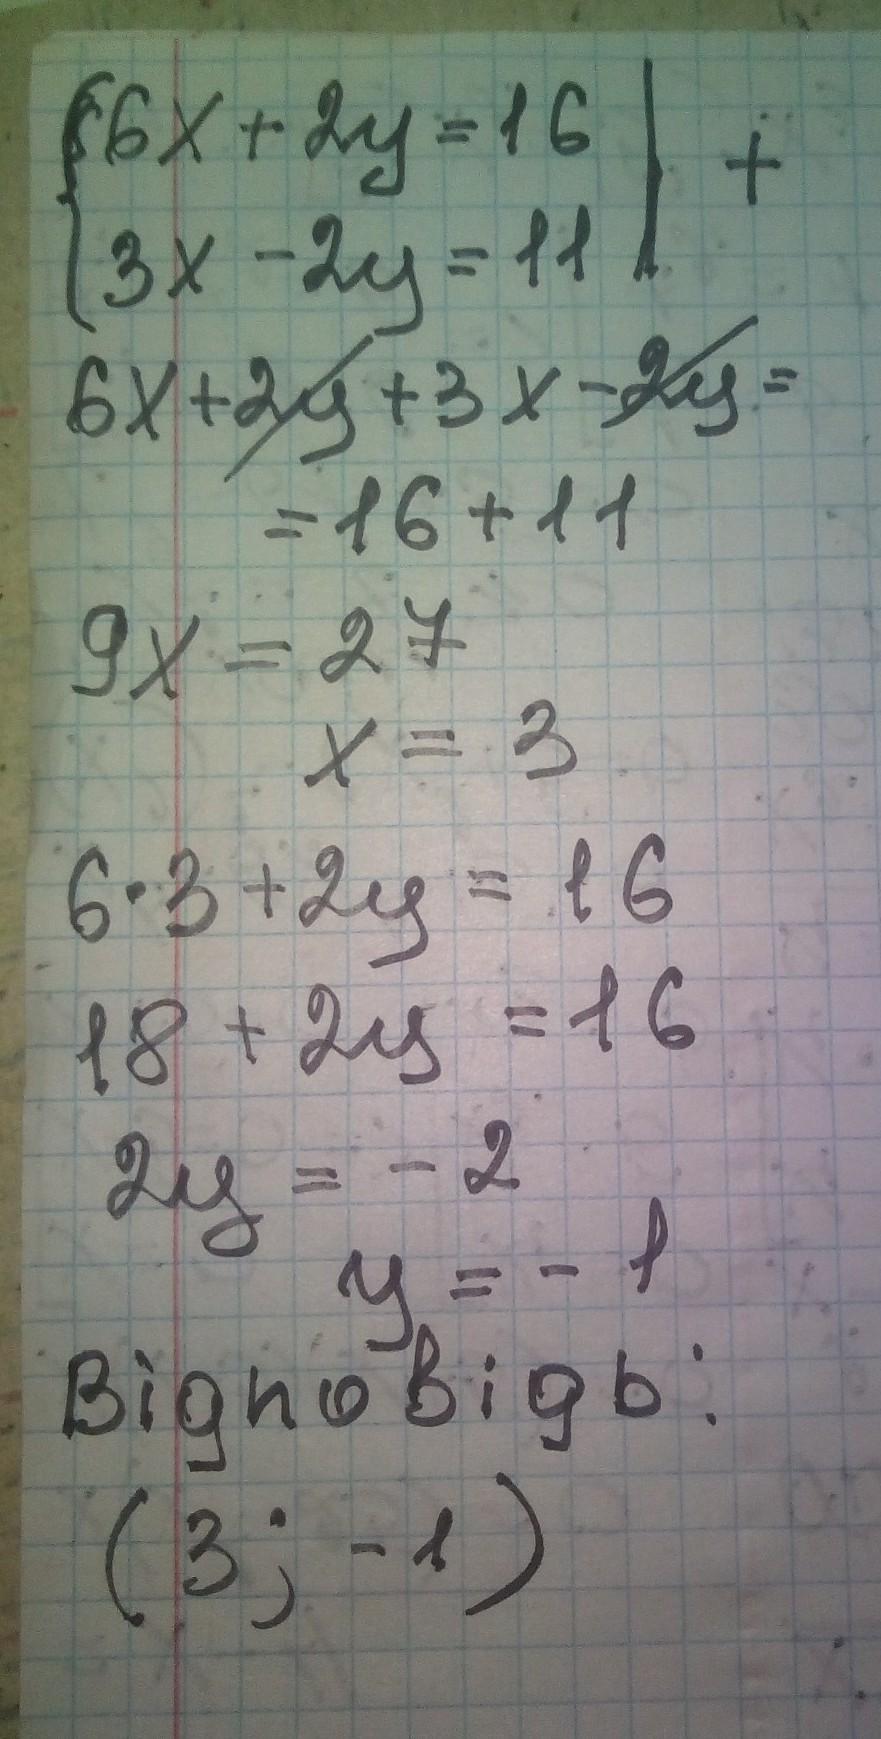 {6x + 2y = 16 | +
{3x - 2y = 11 |
6x + 2y + 3x - 2y =
= 16 + 11
9x = 27
x = 3
6·3 + 2y = 16
18 + 2y = 16
2y = - 2
y = - 1
Відповідь:
(3; -1)